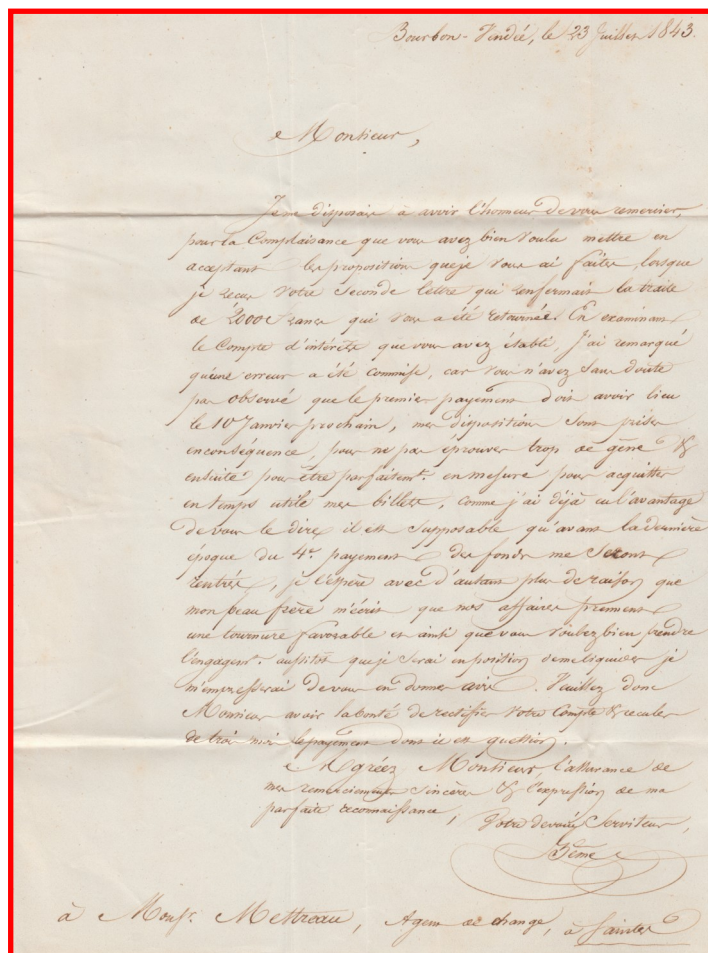 Bourbon-Vendée, le 23 Juillet 1843.
Monsieur,
Je me disposais à avoir l'honneur de vous remercier,
pour la Complaisance que vous avez bien voulu mettre en
acceptant les proposition que je vous ai faites, lorsque
je recus votre seconde lettre qui renfermait la traite
de 2000 francs qui vous a été retournée. En examinant
le Compte d'intérêts que vous avez établi, J'ai remarqué
qu'une erreur a été commise, car vous n'avez sans doute
pas observé que le premier payement doit avoir lieu
le 10 Janvier prochain, mes dispositions sont prises
en conséquence, pour ne pas éprouver trop de gêne &
ensuite pour être parfaitemt. en mesure pour acquitter
en temps utile mes billets, comme j'ai déjà eu l'avantage
de vous le dire, il est supposable qu'avant la dernière
époque du 4e. payement des fonds me seront
rentrés, je l'espère avec d'autant plus de raison que
mon beau frère m'écrit que nos affaires prennent
une tournure favorable et ainsi que vous voulez bien prendre
l'engagemt. aussitôt que je serai en position de me liquider je
m'empresserai de vous en donner avis. Veuillez donc
Monsieur avoir la bonté de rectifier votre Compte & reculer
de trois mois le payement dont il est question.
Agréez Monsieur, l'assurance de
mes remerciements sincères & l'expression de ma
parfaite reconnaissance,
Votre dévoué Serviteur,
à Monsr. Mettreau, Agent de change, à Saintes